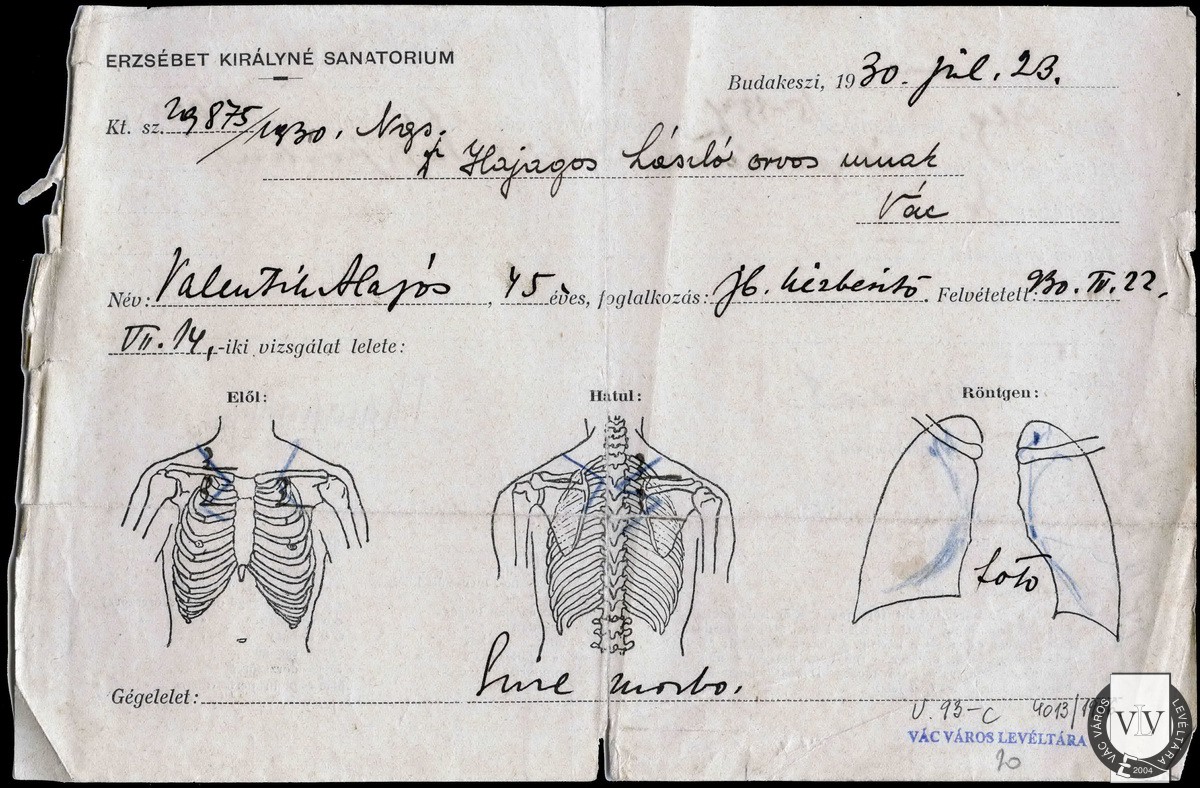 ERZSÉBET KIRÁLYNÉ SANATORIUM
Budakeszi, 1930. júl. 23.
Kt. sz. 29875/1930. Ngs.
dr Hajagos László orvos urnak
Vác
Név: Valentik Alajós, 45 éves, foglalkozás: jb. kézbesitő. Felvétetett: 930. IV. 22.
VII. 14,-iki vizsgálat lelete:
Elől: Hátul: Röntgen:
foto
Gégelelet: Sine morbo.
V. 93-c 4013/19
VÁC VÁROS LEVÉLTÁRA
20
VÁC VÁROS LEVÉLTÁRA
VLV
2004